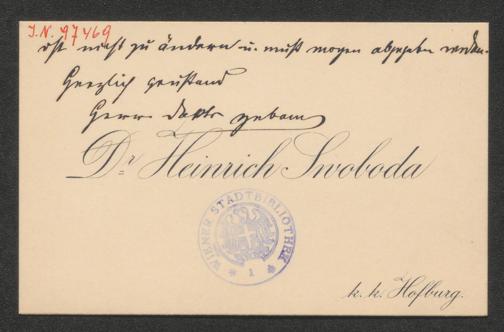 J.N. 97469
ist nicht zu ändern u. muß morgen abgegeben werden.
Herzlich
Herrn
Dr Heinrich Swoboda
WIENER STADTBIBLIOTHEK
1
k. k. Hofburg.